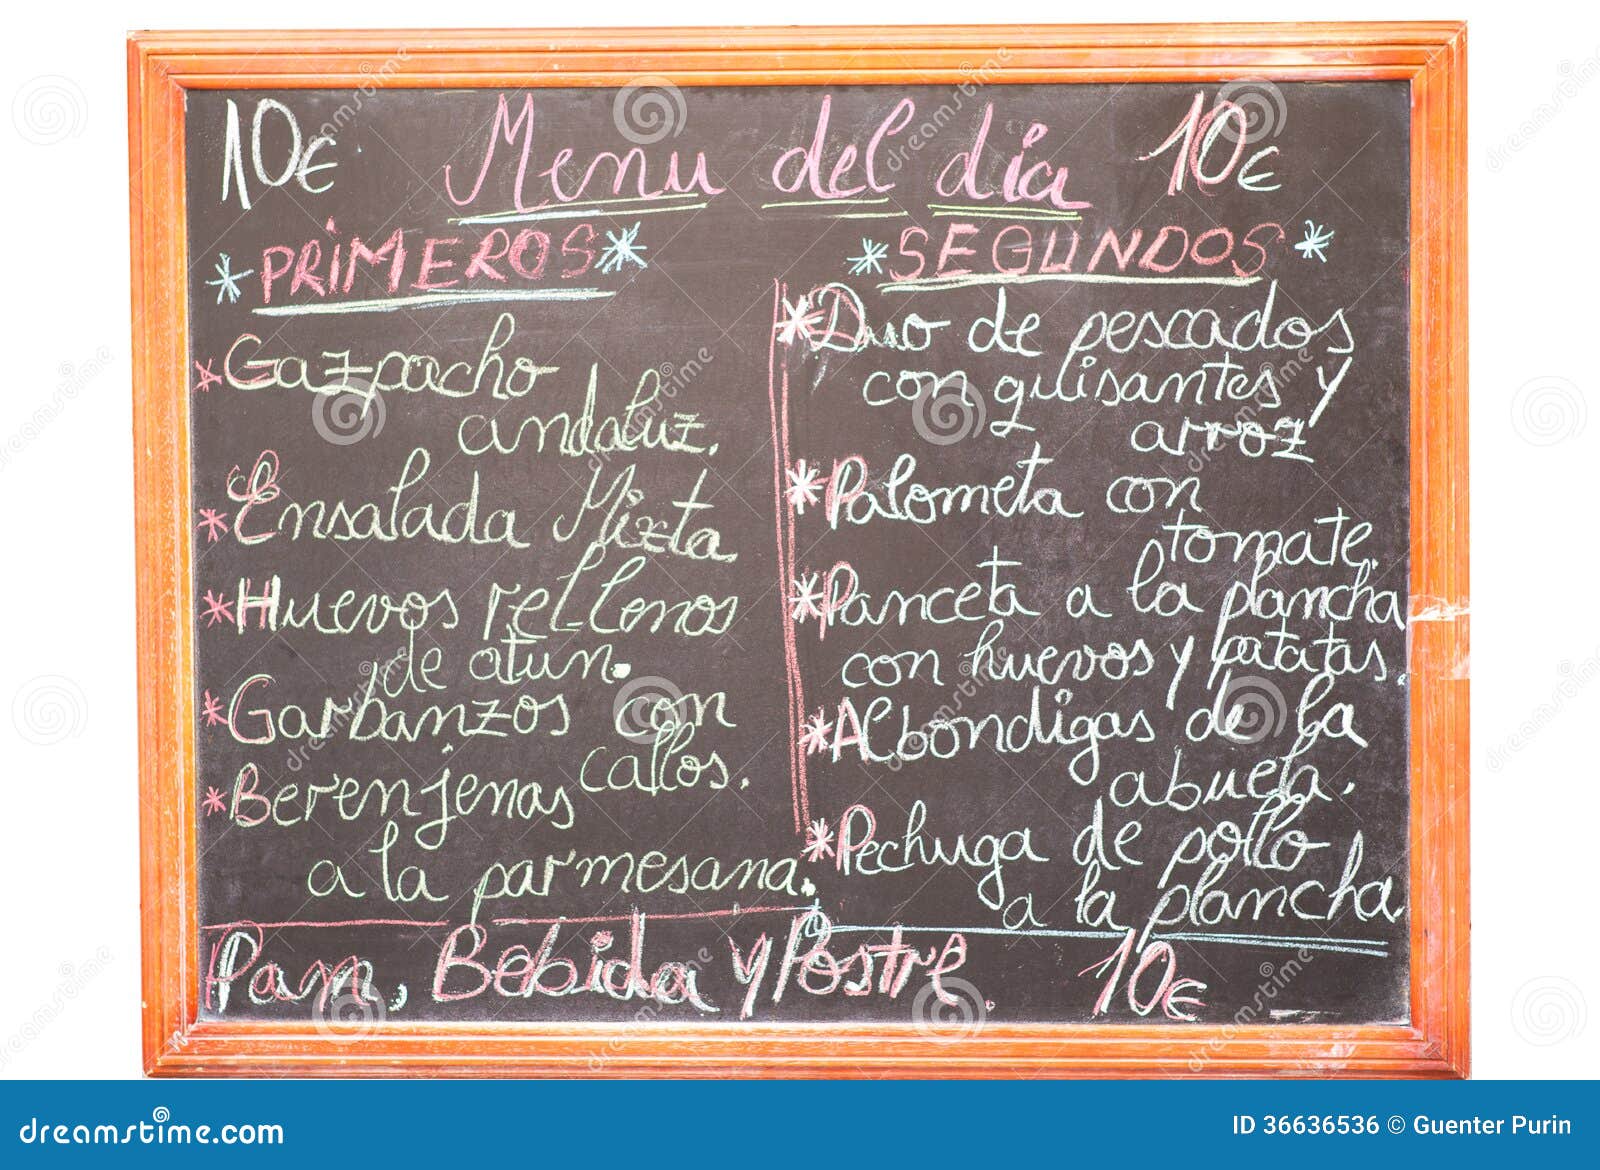 10€ Menu del dia 10€
*PRIMEROS*
*Gazpacho
andaluz.
*Ensalada Mixta
*Huevos rellenos
de atun.
*Garbanzos con
callos.
*Berenjenas
a la parmesana.
*SEGUNDOS*
*Duo de pescados
con guisantes y
arroz
*Palometa con
tomate.
*Panceta a la plancha
con huevos y patatas.
*Albondigas de la
abuela.
*Pechuga de pollo
a la plancha.
Pam, Bebida y Postre. 10€
dreamstime.com
ID 36636536 © Guenter Purin